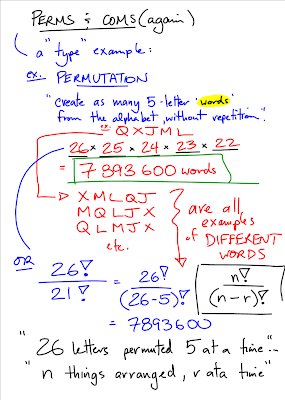 PERMS & COMS (again)
a "type" example:
ex. PERMUTATION
"create as many 5-letter 'words'
from the alphabet, without repetition".
ex. Q X J M L
26 × 25 × 24 × 23 × 22
= 7 893 600 words
→ X M L Q J
M Q L J X
Q L M J X
etc.
are all
examples
of DIFFERENT
WORDS
OR
26! / 21! = 26! / (26-5)!
n! / (n-r)!
= 7893600
"26 letters permuted 5 at a time"
"n things arranged, r at a time"